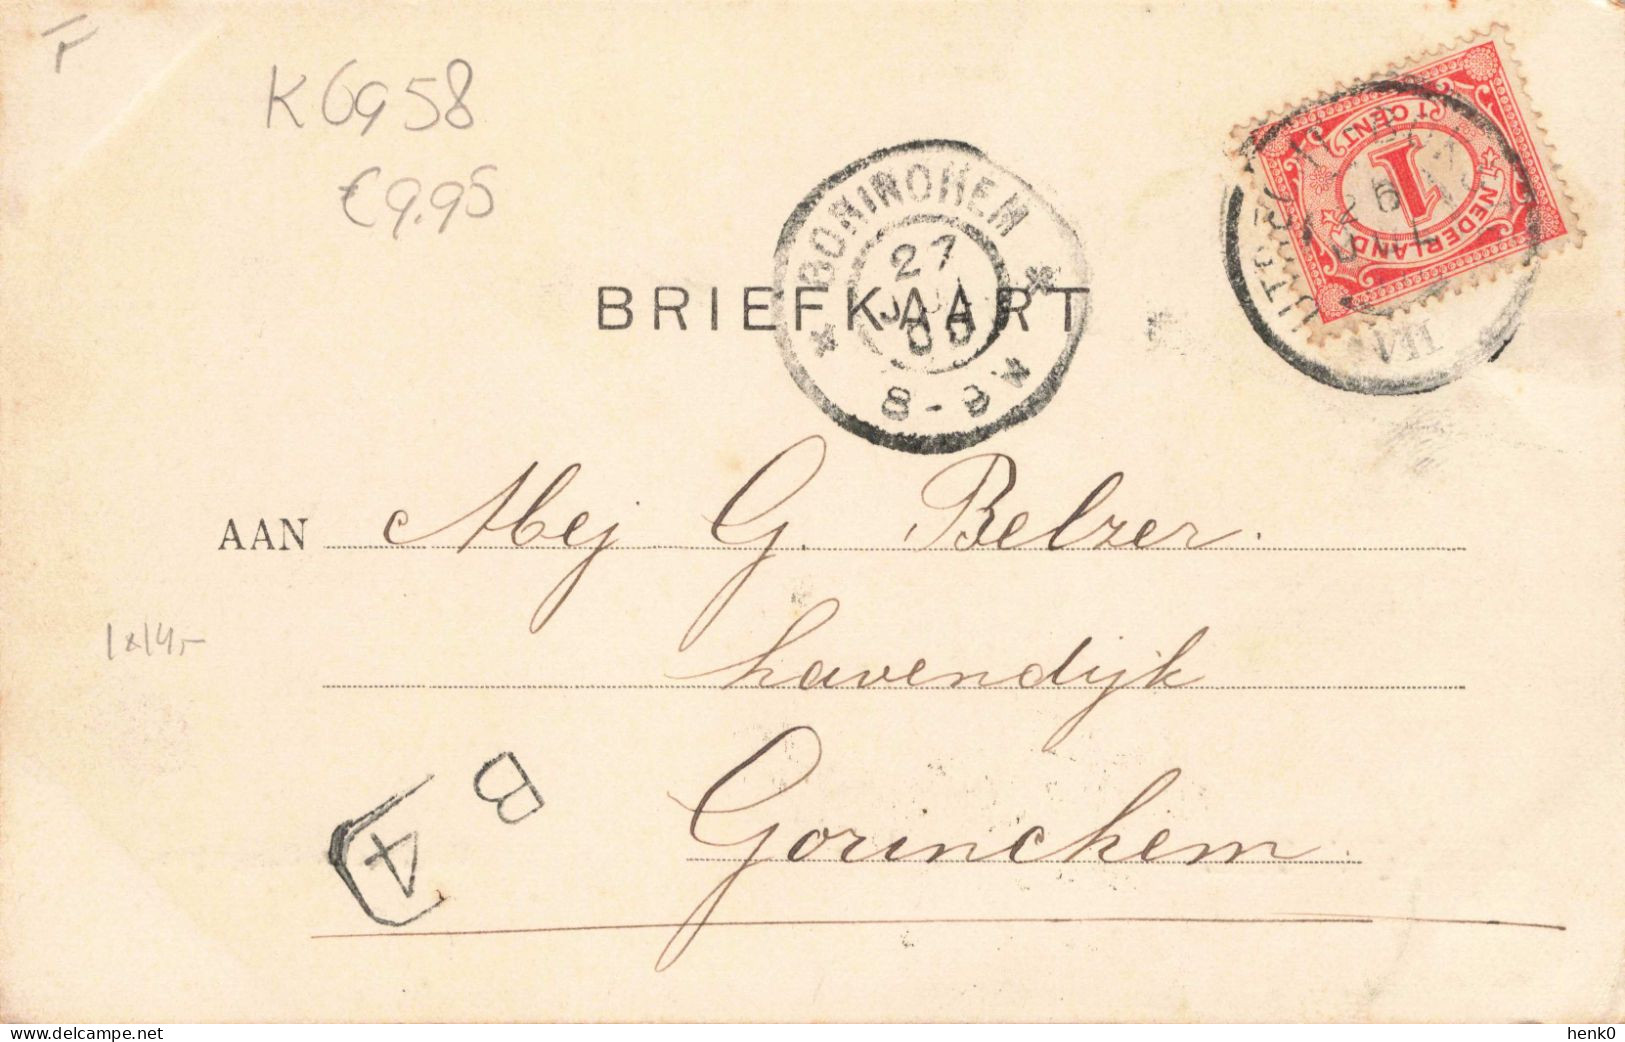 K6958
€9.95
1 CENT
1
NEDERLAND
GORINCHEM
27
00
8-9
UTRECHT
BRIEFKAART
AAN Mej G. Belzer.
havendijk
Gorinchem.
1x14,-
B
4
www.delcampe.net
henk0